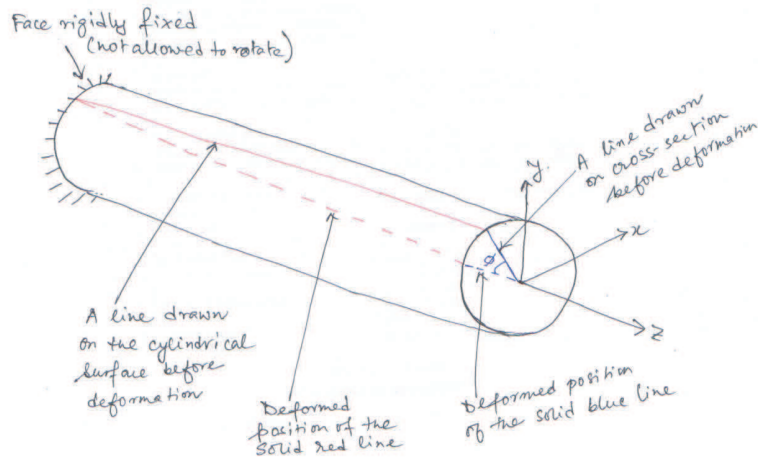 Face rigidly fixed
(not allowed to rotate)
A line drawn
on cross-section
before deformation
y
x
φ
z
A line drawn
on the cylindrical
surface before
deformation
Deformed
position of the
solid red line
Deformed position
of the solid blue line